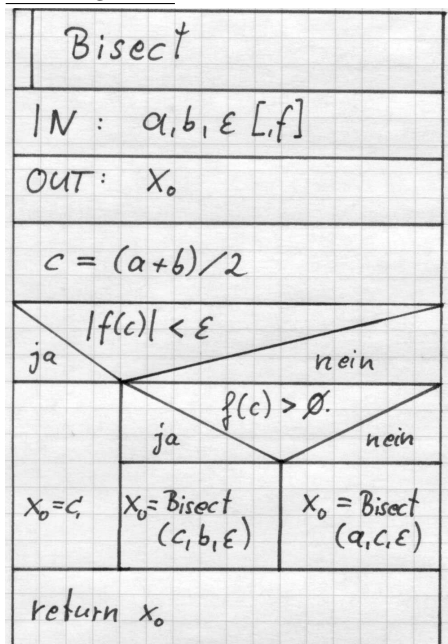 Bisect
IN: a, b, ε [, f]
OUT: X₀
c = (a+b)/2
|f(c)| < ε
ja
nein
f(c) > Ø.
ja
nein
X₀=C,
X₀=Bisect
(c, b, ε)
X₀ = Bisect
(a, c, ε)
return X₀